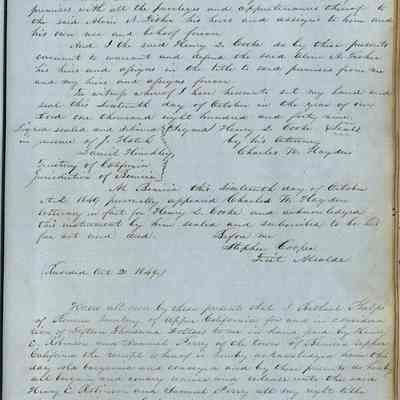 premises with all the privileges and appurtenances thereof to
the said Alvin N. Fisher his heirs and assigns to him and
his own use and behoof forever
And I the said Henry L. Cooke do by these presents
covenant to warrant and defend the said Alvin N. Fisher
his heirs and assigns in the title to said premises from me
and my heirs and assigns forever
In witness whereof I have hereunto set my hand and
seal this Sixteenth day of October in the year of our
Lord one thousand eight hundred and forty nine
Signed sealed and delivered Signed Henry L. Cooke Seal
in presence of J. Hatch by his Attorney
Daniel Charles W. Hayden
Territory of California
Jurisdiction of Benicia
At Benicia this Sixteenth day of October
A.D. 1849 personally appeared Charles W. Hayden
Attorney in fact for Henry L. Cooke and acknowledged
this instrument by him sealed and subscribed to be his
free act and deed. Before me
Stephen Cooper
First Alcalde
Recorded Oct 20 1849
Know all men by these presents that I Phelps
of Benicia Territory of Upper California for and in consideration
of Fifteen Thousand Dollars to me in hand paid by Henry
E. Robinson and Samuel Perry of the town of Benicia Upper
California the receipt whereof is hereby acknowledged have this
day sold bargained and conveyed and by these presents do
bargain and convey remise and release unto the said
Henry E. Robinson and Samuel Perry all my right title